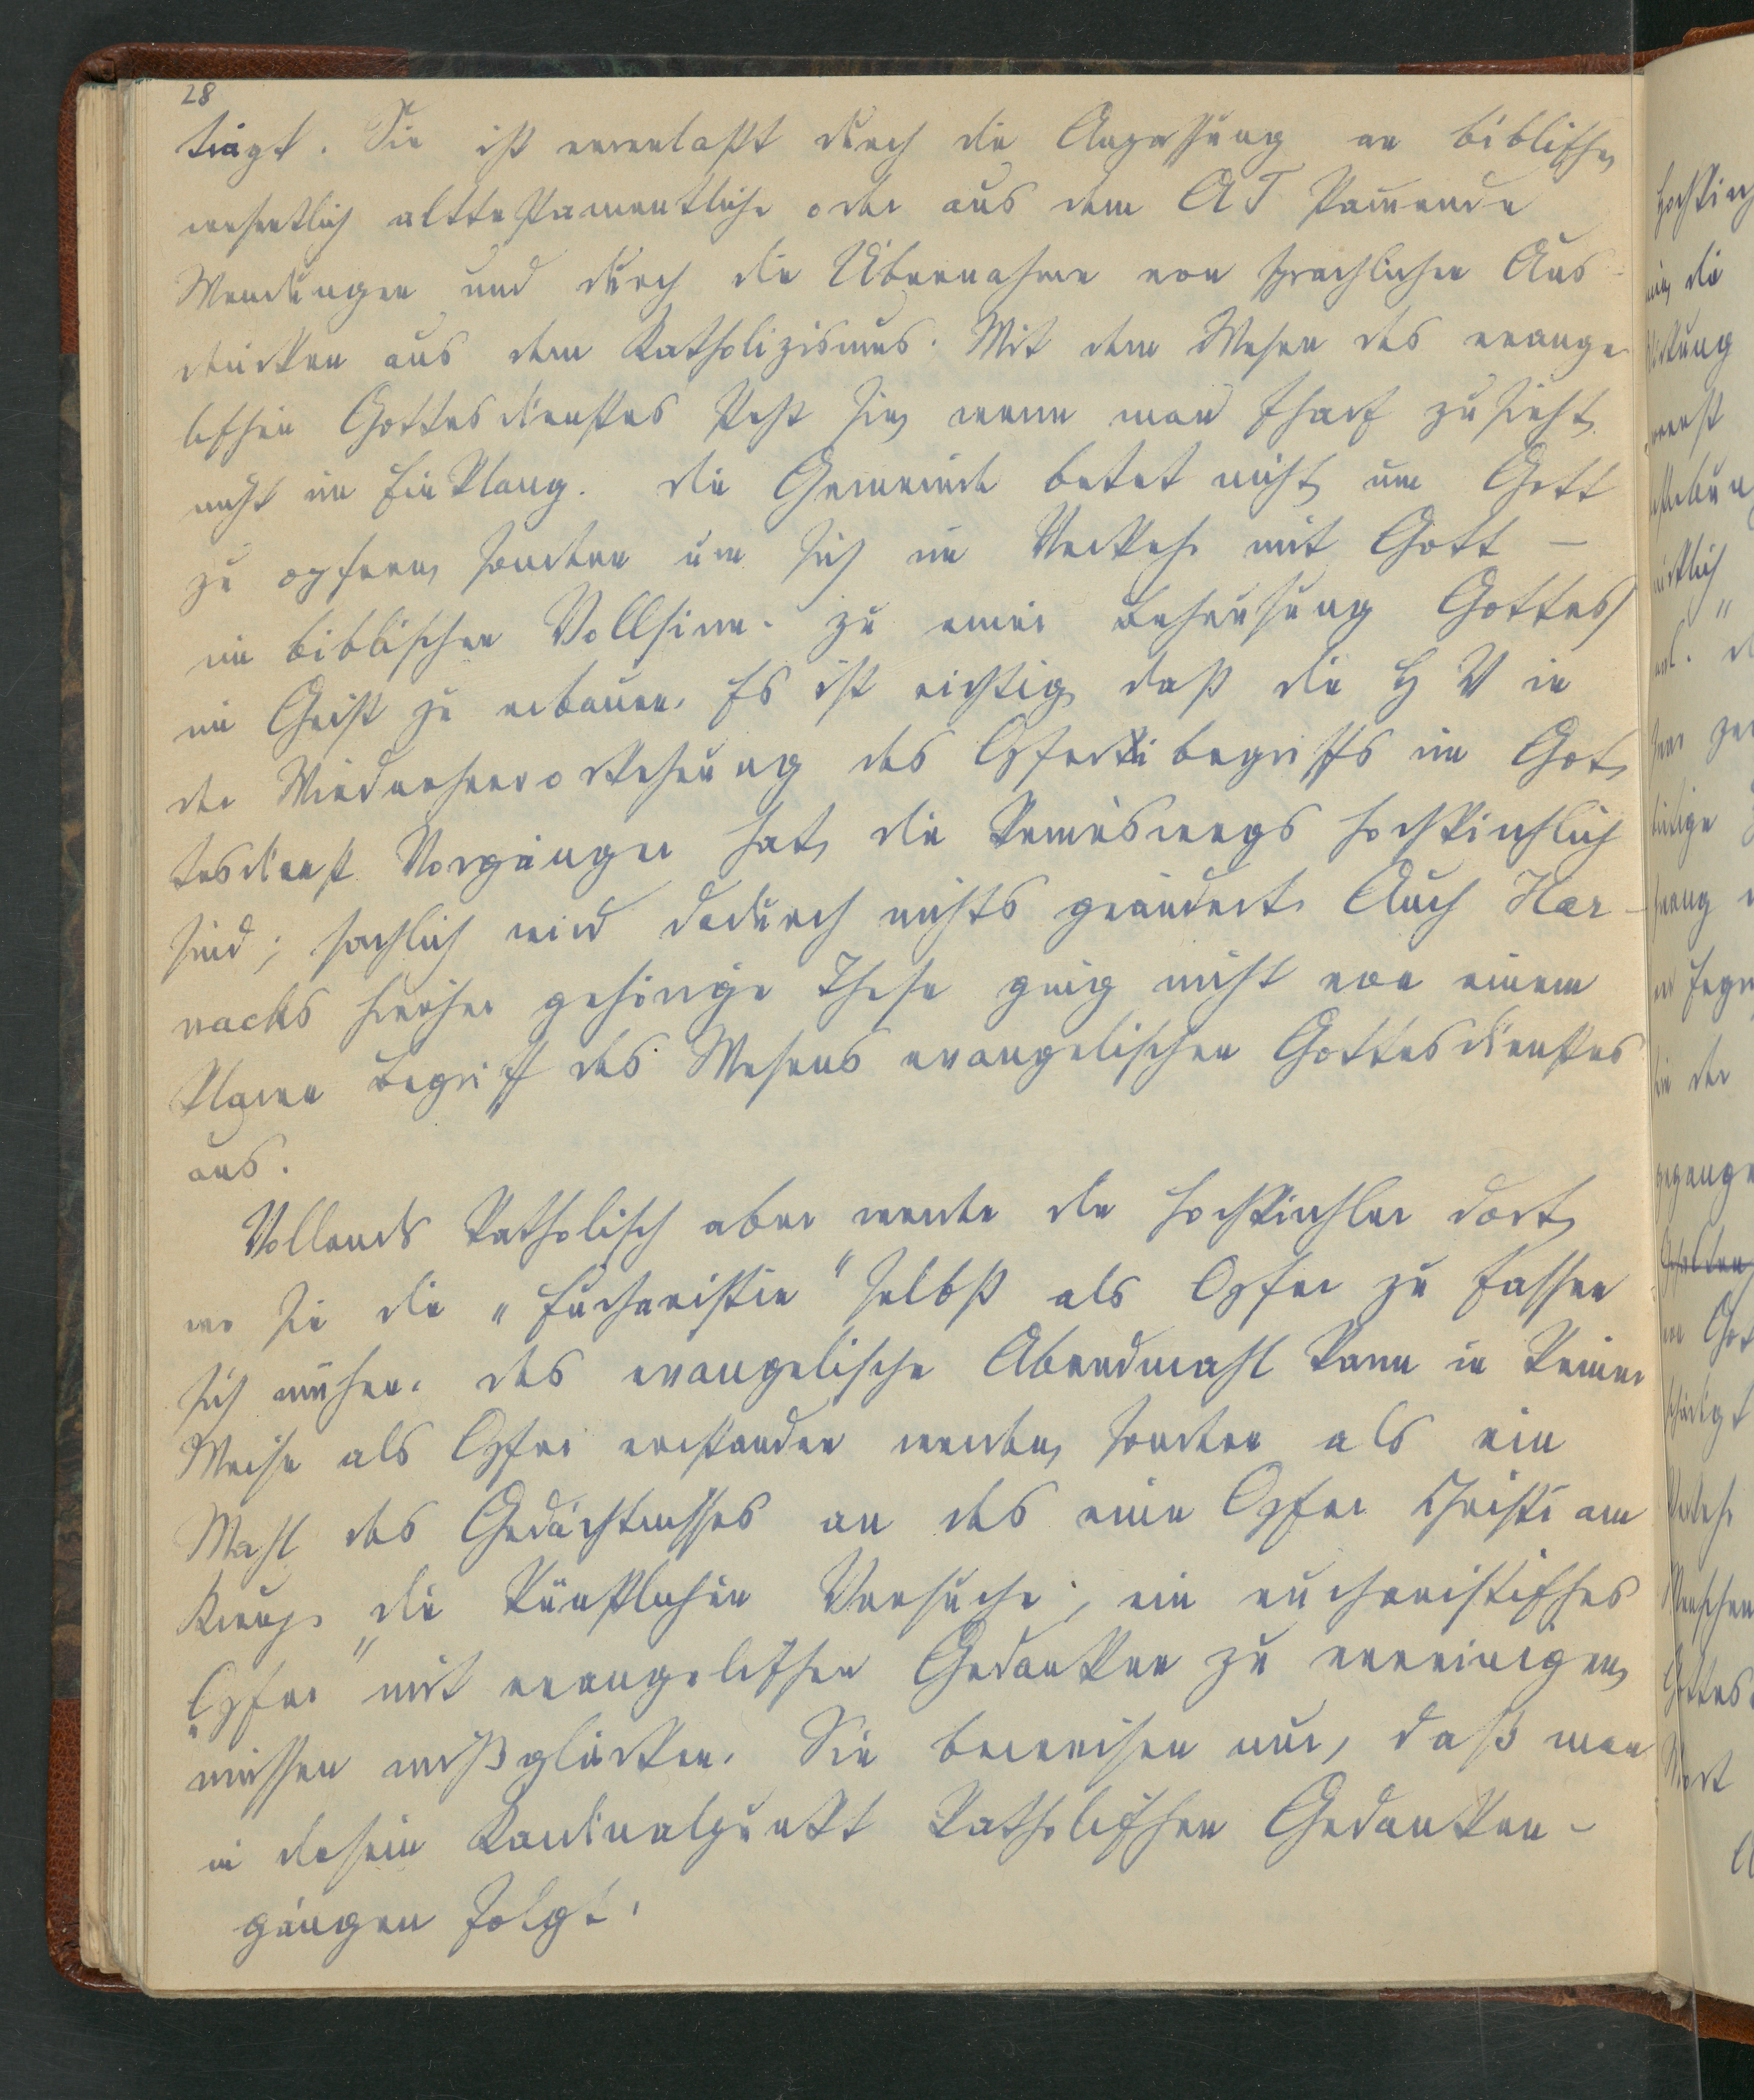 28
trägt. Sie ist veranlaßt durch die Anpassung an biblische,
wesentlich alttestamentliche oder aus dem AT stammende
Wendungen und durch die Übernahme von sprachlichen Aus-
drücken aus dem Katholizismus. Mit dem Wesen des evange
lischen Gottesdienstes steht sie, wenn man scharf zusieht,
nicht im Einklang. Die Gemeinde betet nicht, um Gott
zu opfern, sondern um sich im Verkehr mit Gott –
im biblischen Vollsinn – zu einer Behausung Gottes
im Geist zu erbauen. Es ist richtig, daß die H V in
der Wiederhervorkehrung des Opferbegriffs im Got,
tesdienst Vorgänger hat, die keineswegs hochkirchlich
sind; sachlich wird dadurch nichts geändert. Auch Har-
nacks hierher gehörige These ging nicht von einem
klaren Begriff des Wesens evangelischen Gottesdienstes
aus.
Vollends katholisch aber werden die Hochkirchler dort,
wo sie die "Eucharistie" selbst als Opfer zu fassen
sich mühen. Das evangelische Abendmahl kann in keiner
Weise als Opfer verstanden werden, sondern als ein
Mahl des Gedächtnisses an das eine Opfer Christi am
Kreuz. Die künstlichen Versuche, ein eucharistisches
"Opfer" mit evangelischen Gedanken zu vereinigen,
müssen mißglücken. Sie beweisen nur, daß man
in diesem Kardinalpunkt katholischen Gedanken-
gängen folgt.